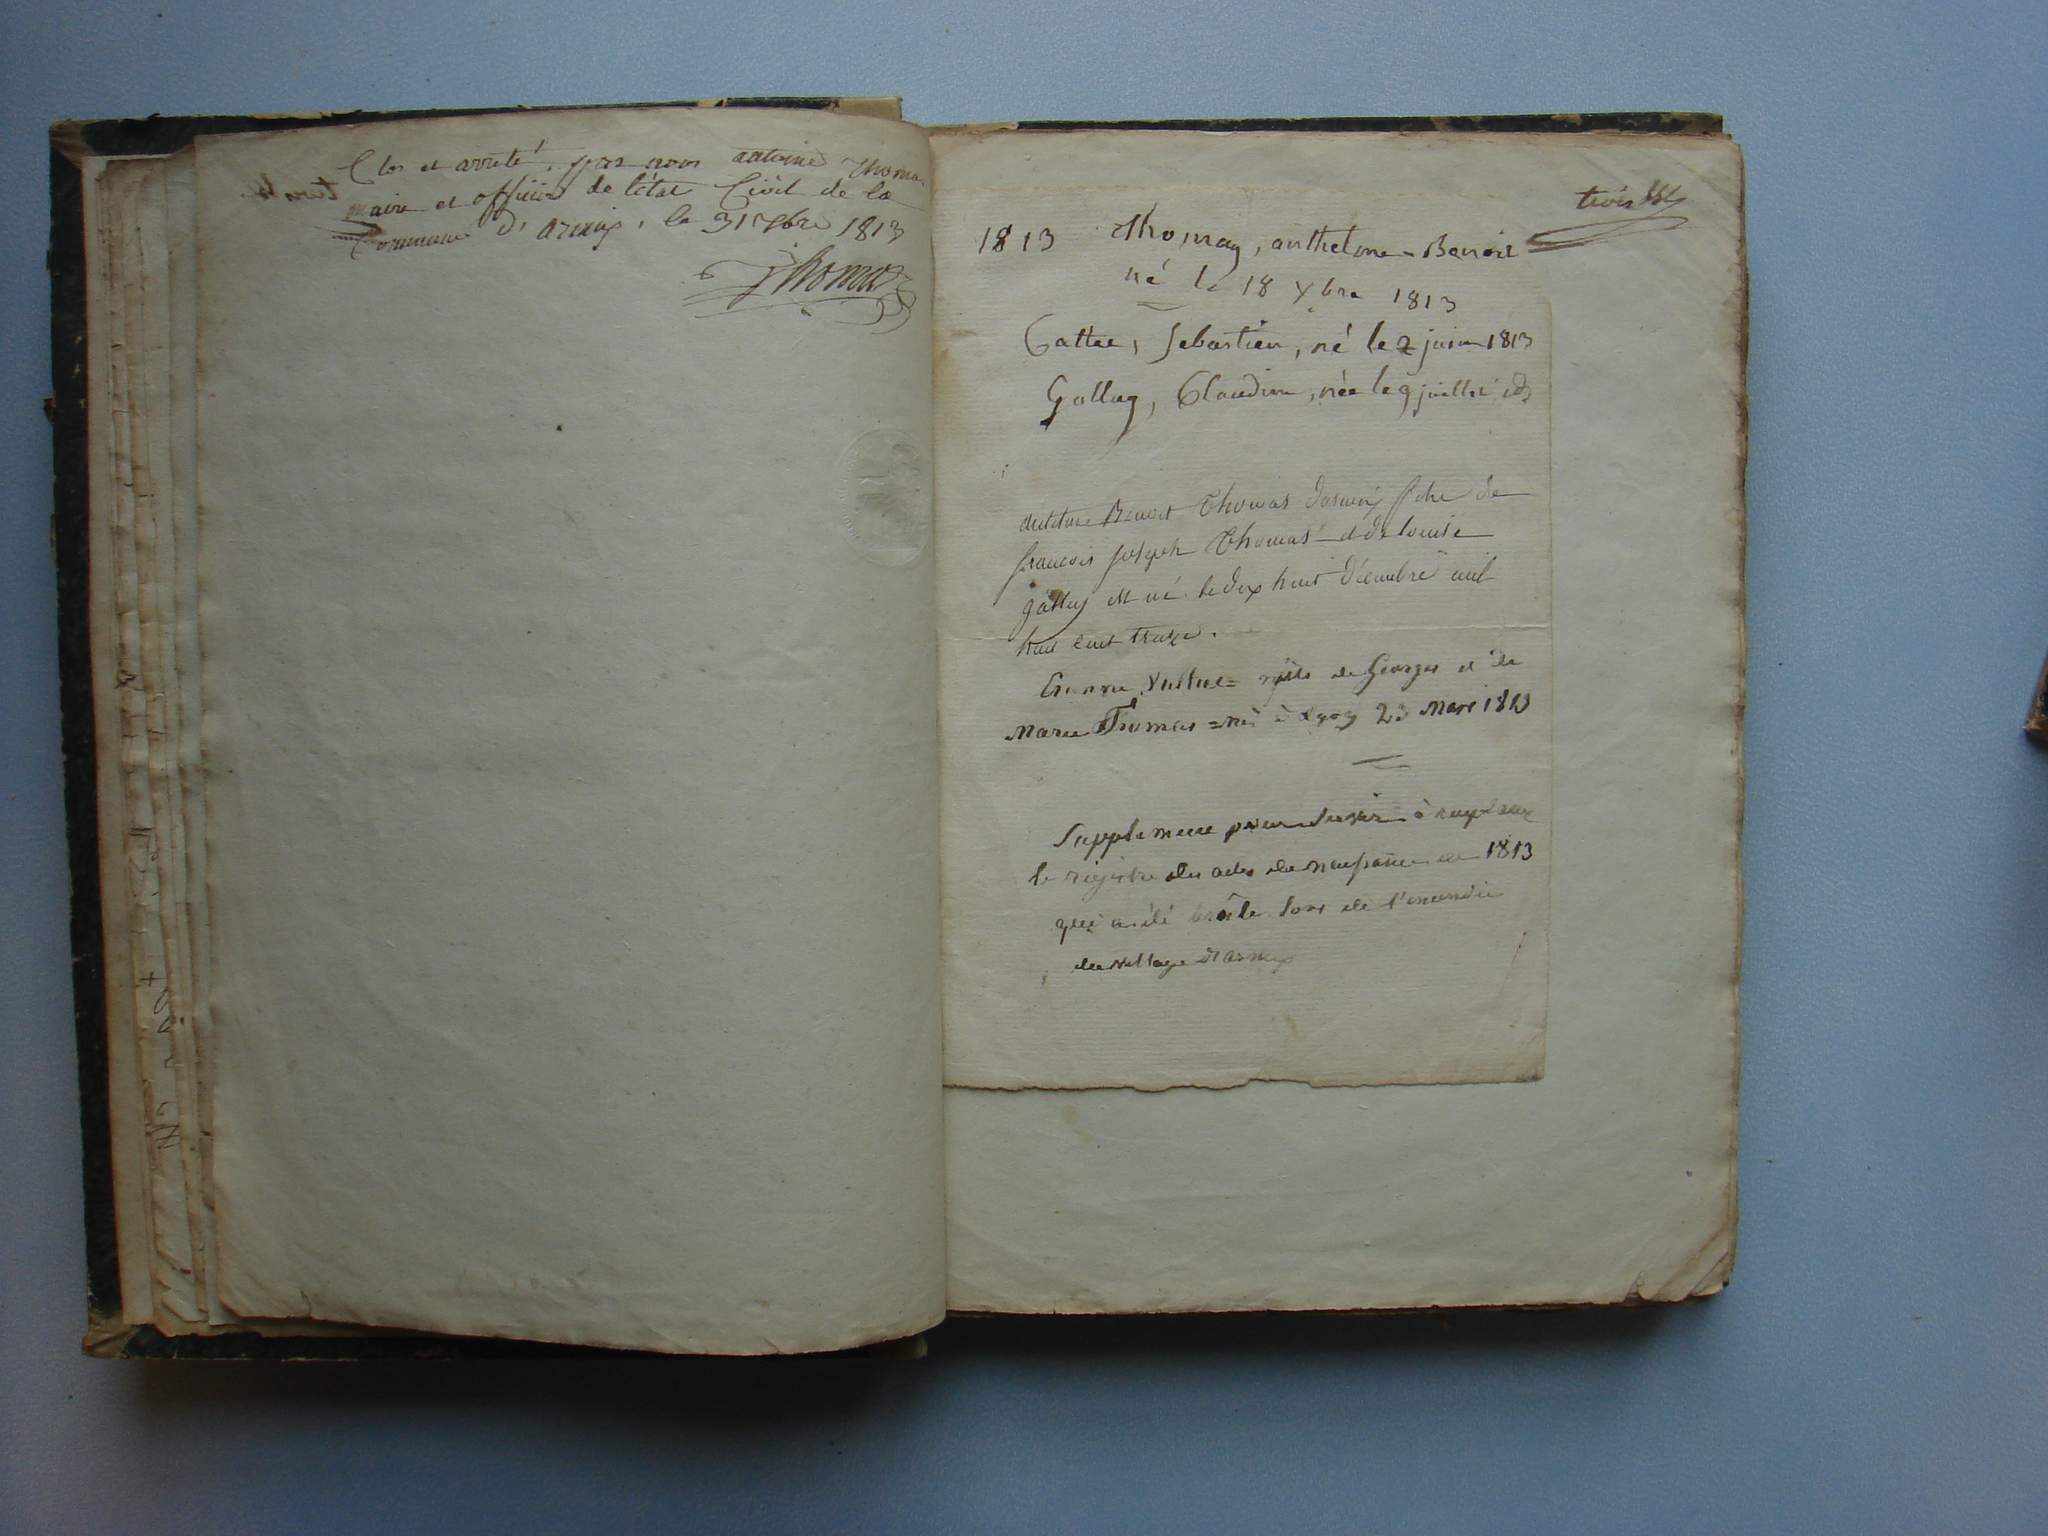 Clos et arrêté par nous antoine Thomas
maire et officier de létat Civil de la
Commune d'armix, le 31 Xbre 1813
Thomas
trois
1813 Thomas, anthelme-Benoit
né le 18 Xbre 1813
Gattet, Sebastien, né le 2 juin 1813
Gallay, Claudine, née le 9 juillet id
Benoit Thomas d'armix fils de
francois joseph Thomas et de louise
gallay est né le dix huit décembre mil
huit cent treize.
fils de Georges et de
Marie Thomas = né à 23 Mars 1813
Supplement pour servir à remplacer
le registre des actes de naissance de 1813
qui a été brûlé lors de l'incendie
du village d'armix